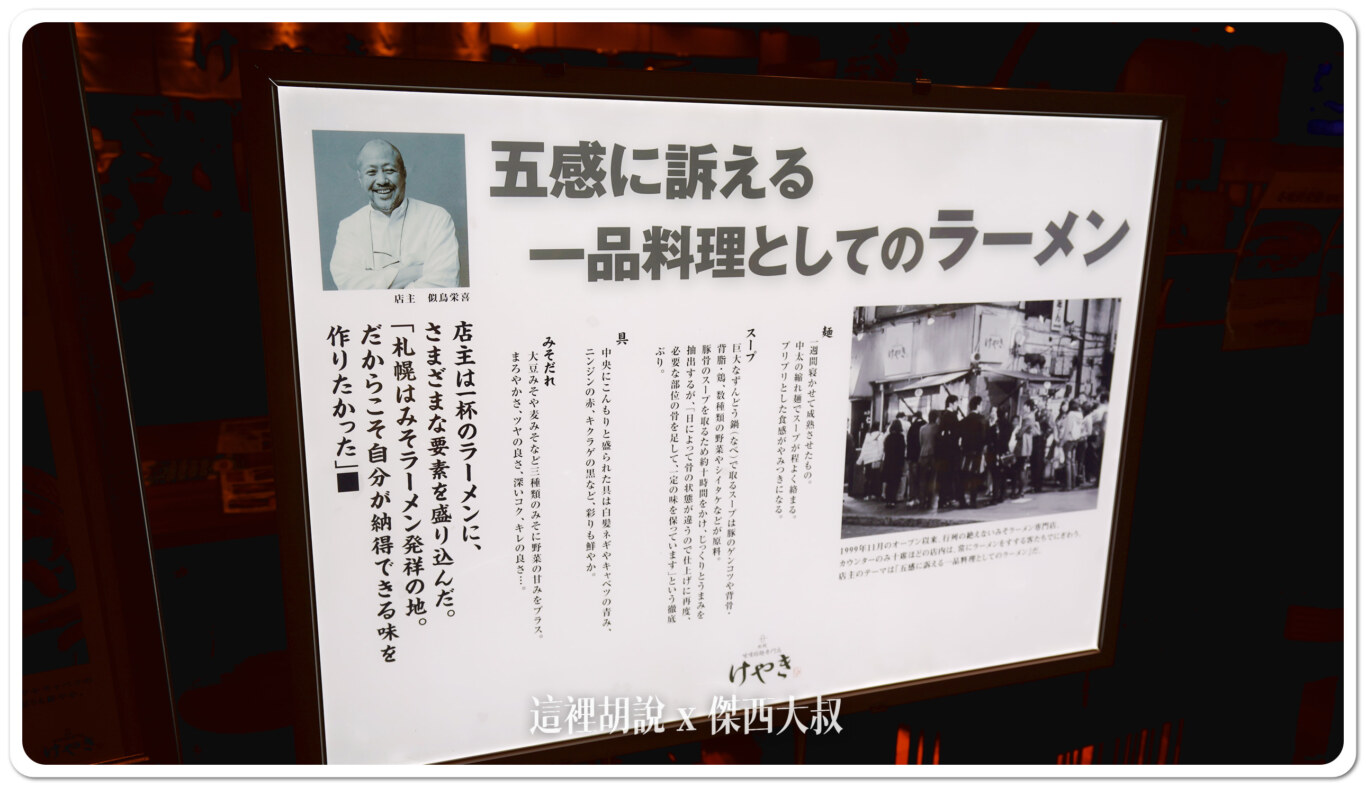 五感に訴える
一品料理としてのラーメン
店主 似鳥栄喜
店主は一杯のラーメンに、
さまざまな要素を盛り込んだ。
「札幌はみそラーメン発祥の地。
だからこそ自分が納得できる味を
作りたかった」■
麺
一週間寝かせて成熟させたもの。
中太の縮れ麺でスープが程よく絡まる。
プリプリとした食感がやみつきになる。
スープ
巨大なずんどう鍋(なべ)で取るスープは豚のゲンコツや背骨・
背脂・鶏、数種類の野菜やシイタケなどが原料。
豚骨のスープを取るため約十時間をかけ、じっくりとうまみを
抽出するが、「日によって骨の状態が違うので仕上げに再度、
必要な部位の骨を足して、一定の味を保っています」という徹底
ぶり。
具
中央にこんもりと盛られた具は白髪ネギやキャベツの青み、
ニンジンの赤、キクラゲの黒など、彩りも鮮やか。
みそだれ
大豆みそや麦みそなど三種類のみそに野菜の甘みをプラス。
まろやかさ、ツヤの良さ、深いコク、キレの良さ…。
けやき
1999年11月のオープン以来、行列の絶えないみそラーメン専門店。
カウンターのみ十席ほどの店内は、常にラーメンをすする客たちでにぎわう。
店主のテーマは「五感に訴える一品料理としてのラーメン」だ。
けやき
這裡胡說 x 傑西大叔